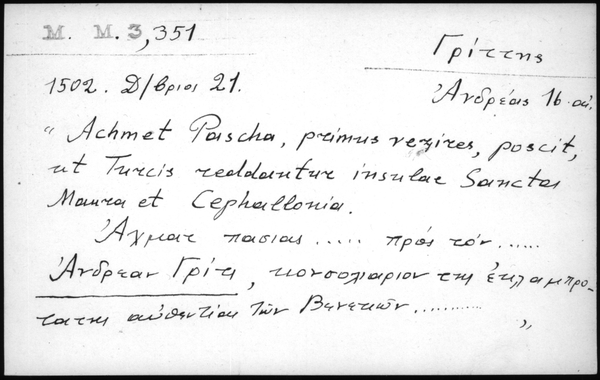 M. M. 3, 351
Γρίττης
1502. Δ/βριοι 21.
Ἀνδρέας 16 αἰ.
"Achmet Pascha, primus vezires, poscit,
ut Turcis reddantur insulae Sanctae
Maura et Cephallonia.
Ἀχματ πασιας ..... πρός τόν .....
Ἀνδρεαν Γρίτι, κονσολιαριον της ἐκλαμπρο-
τατης αὐθεντίας τῶν Βενετιῶν ..........."